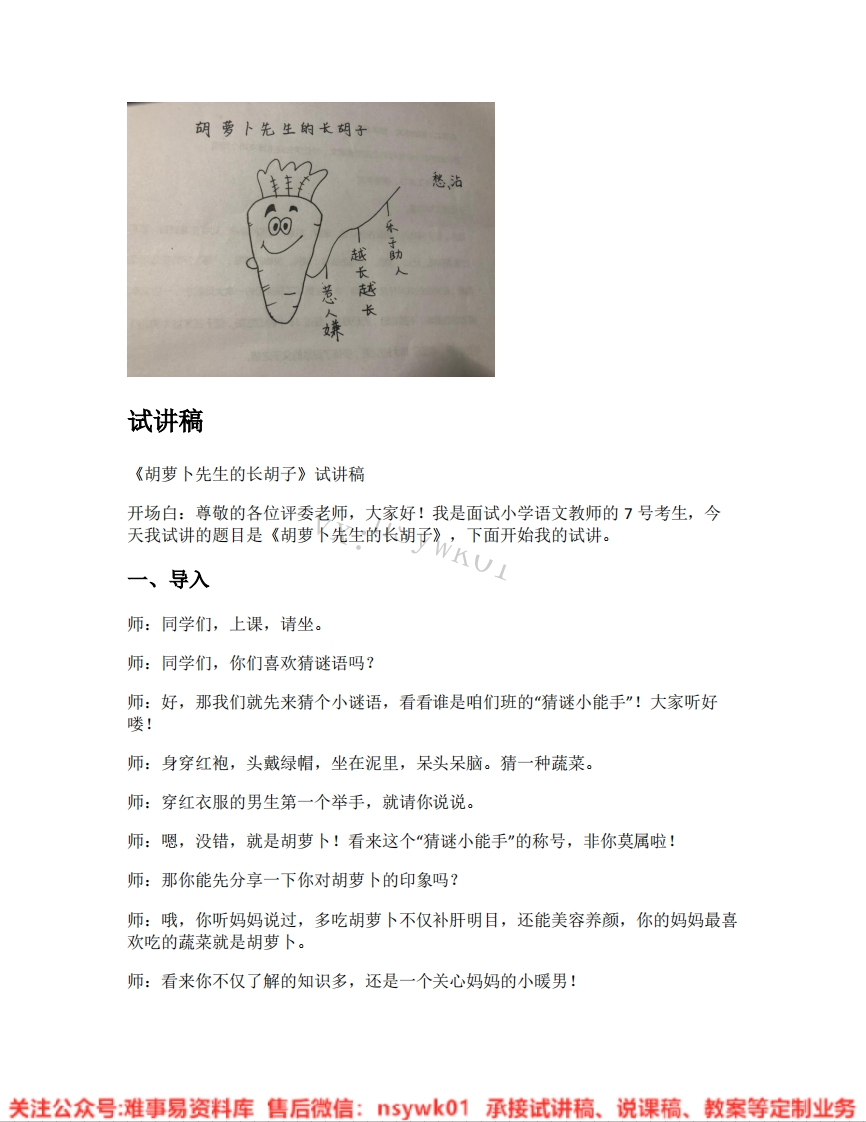 胡萝卜先生的长胡子
愁、沾
乐于助人
越长越长
惹人嫌
试讲稿
《胡萝卜先生的长胡子》试讲稿
开场白：尊敬的各位评委老师，大家好！我是面试小学语文教师的 7 号考生，今
天我试讲的题目是《胡萝卜先生的长胡子》，下面开始我的试讲。
一、导入
师：同学们，上课，请坐。
师：同学们，你们喜欢猜谜语吗？
师：好，那我们就先来猜个小谜语，看看谁是咱们班的“猜谜小能手”！大家听好
喽！
师：身穿红袍，头戴绿帽，坐在泥里，呆头呆脑。猜一种蔬菜。
师：穿红衣服的男生第一个举手，就请你说说。
师：嗯，没错，就是胡萝卜！看来这个“猜谜小能手”的称号，非你莫属啦！
师：那你能先分享一下你对胡萝卜的印象吗？
师：哦，你听妈妈说过，多吃胡萝卜不仅补肝明目，还能美容养颜，你的妈妈最喜
欢吃的蔬菜就是胡萝卜。
师：看来你不仅了解的知识多，还是一个关心妈妈的小暖男！
关注公众号:难事易资料库 售后微信：nsywk01 承接试讲稿、说课稿、教案等定制业务